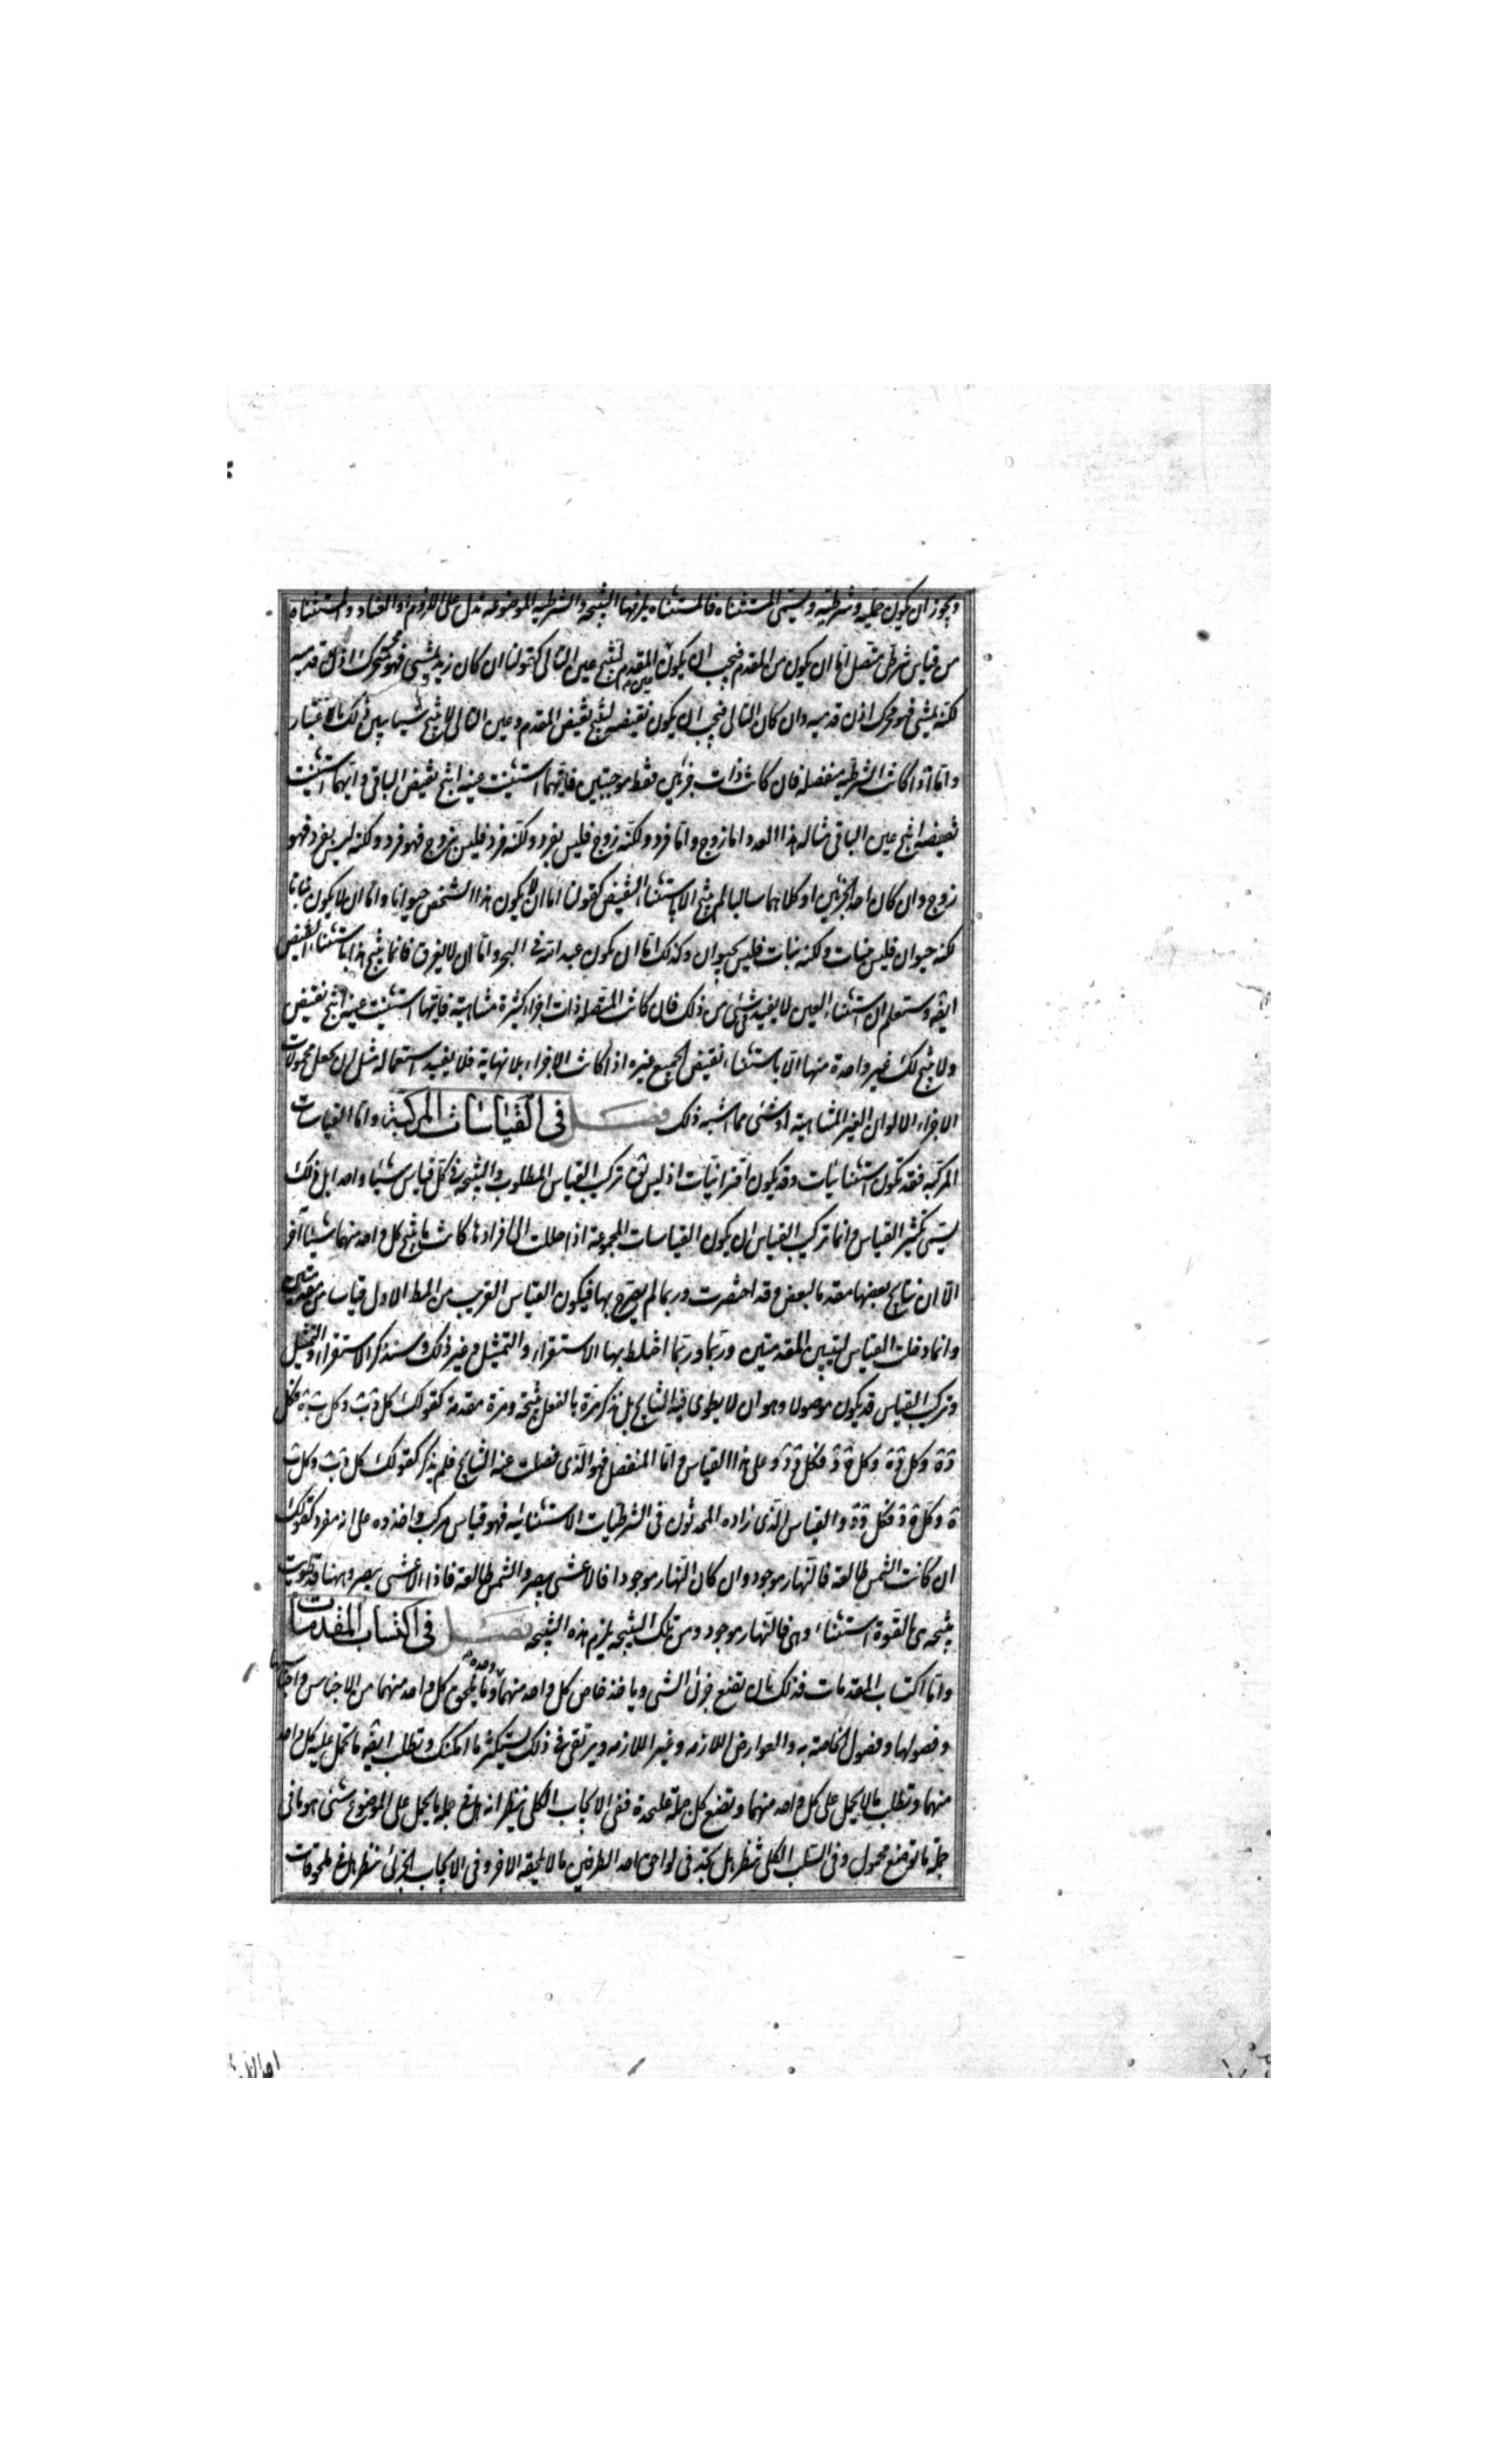 ويجوز ان يكون حملية وشرطية ويسمى المستثناه فالمستثناه يلزمها النتيجة والشرطية الموضوعة تدل على اللزوم او العناد والمستثناه
من قياس شرطي متصل اما ان يكون من المقدم فيجب ان يكون عين المقدم لينتج عين التالى كقولنا ان كان زيد يمشي فهو محرك اذن قدميه
لكنه يمشي فهو محرك اذن قدميه وان كان التالى فيجب ان يكون نقيضه لينتج نقيض المقدم وعين التالى لا ينتج شيئا يبين ذلك بالاعتبار
واما اذا كانت الشرطية منفصلة فان كانت ذات جزئين فقط موجبتين فايهما استثنيت عينه انتج نقيض الباقى وايهما استثنيت
نقيضه انتج عين الباقى مثاله هذا العدد اما زوج واما فرد ولكنه زوج فليس بفرد ولكنه فرد فليس بزوج فهو فرد ولكنه ليس بفرد فهو
زوج وان كان احد الجزئين او كلاهما سالبا لم ينتج الا باستثناء النقيض كقولنا اما ان لا يكون هذا الشخص حيوانا واما ان لا يكون نباتا
لكنه حيوان فليس بنبات ولكنه نبات فليس بحيوان وكذلك اما ان يكون عبد الله فى البحر واما ان لا يغرق فانما ينتج هذا باستثناء النقيض
ايضه وستعلم ان استثناء العين لا يفيد شئ من ذلك فان كانت المتصلة ذات اجزاء كثيرة متناهية فايها استثنيت عينه انتج نقيض
ولا ينتج لك غير واحدة منها الا باستثناء نقيض الجميع غيره اذا كانت الاجزاء بلا نهاية فلا يفيد استعماله مثل ان يجعل محمولات
الاجزاء الالوان الغير المتناهية او شئ مما اشبه ذلك فصل فى القياسات المركبة واما القياسات
المركبة فقد تكون استثنائيات وقد يكون اقترانيات اذ ليس تركيب القياس المطلوب والنتيجة فى كل قياس شيئا واحدا بل ذلك
يسمى تكثير القياس وانما تركيب القياس ان يكون القياسات المجموعة اذا حللت الى افرادها كانت ما ينتج كل واحد منهما شيئا آخر
الا ان نتايج بعضها مقدما لبعض وقد اختصرت وربما لم يصرح بها فيكون القياس القريب من المط الاول قياسا من مقدمتين
وانما دخلت القياس لتبيين المقدمتين وربما وربما اختلط بها الاستقراء والتمثيل وغير ذلك وسنذكر الاستقراء والتمثيل
وتركيب القياس قد يكون موصولا وهو ان لا يطوى فيه النتايج بل تذكر مرة بالفعل نتيجة ومرة مقدمة كقولك كل
وعلى هذا القياس واما المنفصل فهو الذى فصلت عنه النتايج فلم يذكر كقولك كل
والقياس الذى زاده المحدثون فى الشرطيات الاستثنائيه فهو قياس مركب واخذوه على انه مفرد كقولك
ان كانت الشمس طالعة فالنهار موجود وان كان النهار موجودا فالاعشى يبصر والشمس طالعة فاذا الاعشى يبصر وههنا قد طويت
نتيجة هى بالقوة استثناء وهى فالنهار موجود ومن تلك النتيجة يلزم هذه النتيجة فصل فى اكتساب المقدمات
واما اكتساب المقدمات فذلك بان تضع جزئى الشئ وياخذ خاص كل واحد منهما وما يلحق كل واحد منهما من الاجناس واجناسها
وفصولها وفصول الخاصة به والعوارض اللازمه وغير اللازمه ويرتقى فى ذلك ليستكثر ما امكنك وتطلب ايضه ما تحمل عليه كل واحد
منهما وتطلب ما لا يحمل على كل واحد منهما وتضع كل جملة علىحدة ففى الايجاب الكلى ينظر انه هل فى جملة ما يحمل على الموضوع شئ هو ما فى
جملة ما توضع محمول وفى السلب الكلى تنظر هل تجد فى لواحق احد الطرفين ما لا يلحقه الاخر وفى الايجاب الجزئى ننظر هل فى ملحوقات